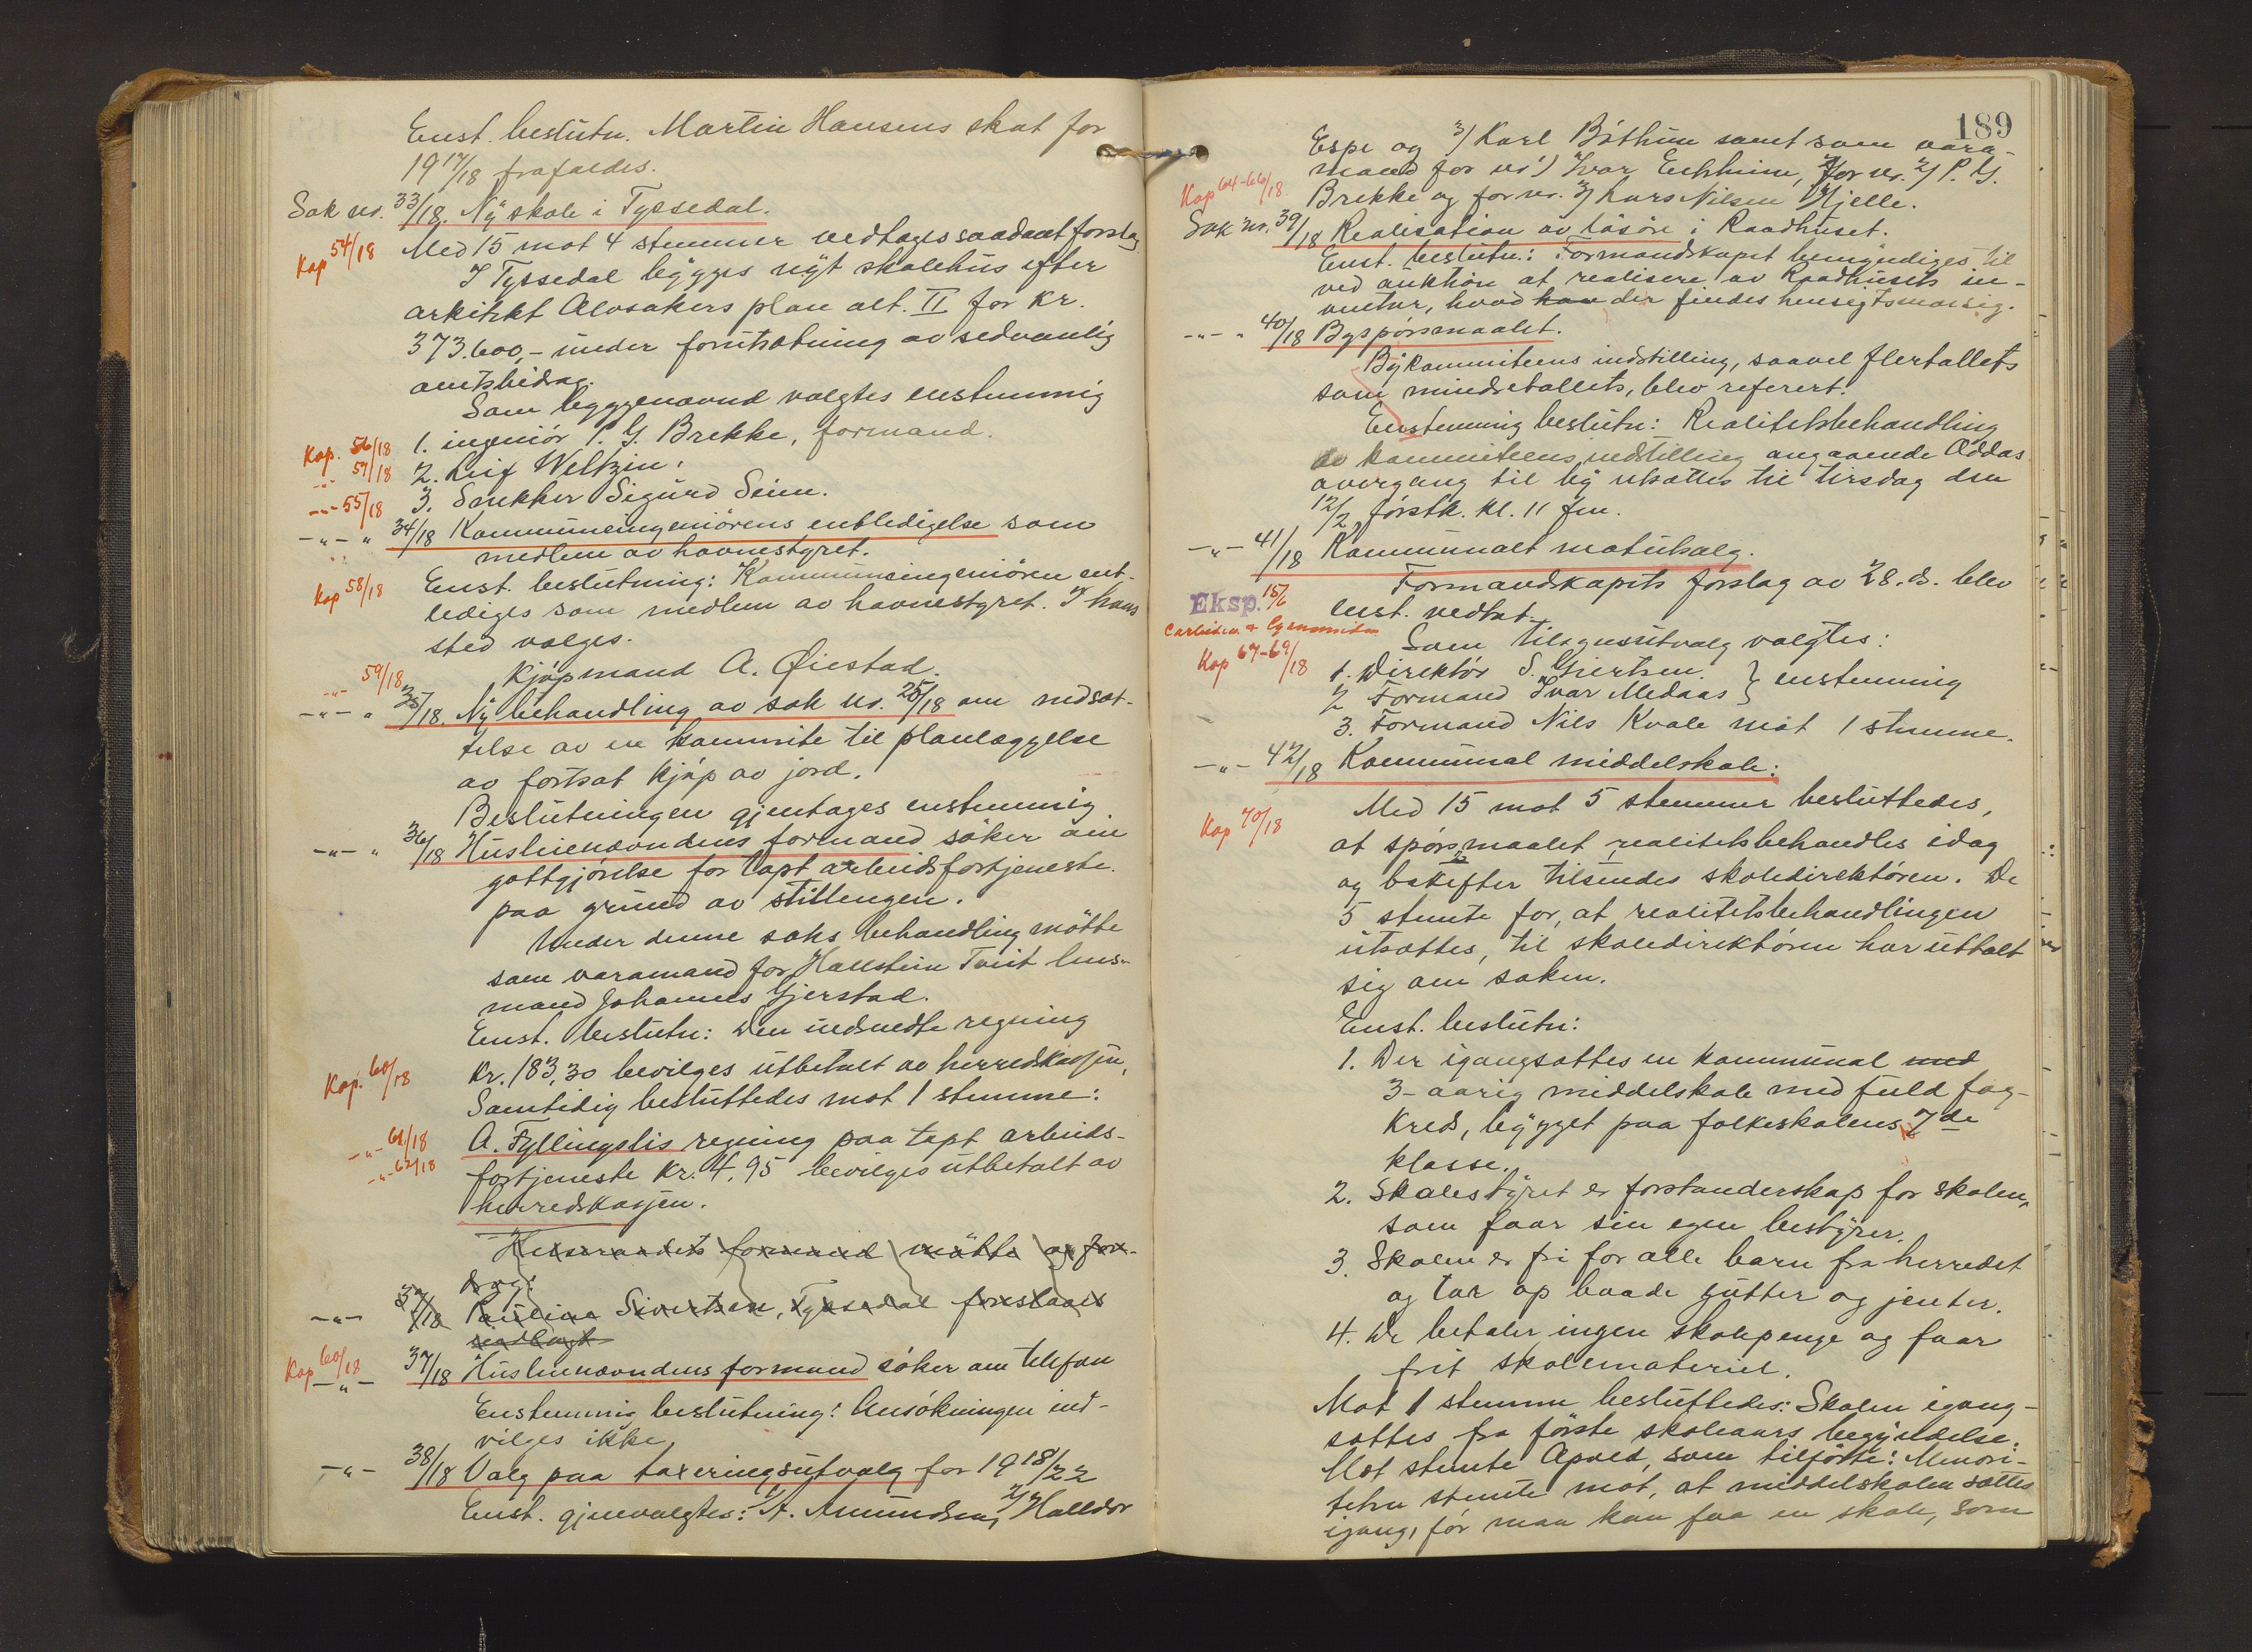 Enst. beslutn. Martin Hansens skat for
1917/18 frafaldes.
Sak nr. 33/18. Ny skole i Tyssedal.
Kop 54/18 Med 15 mot 4 stemmer vedtages saadant forslag
I Tyssedal bygges nyt skolehus efter
arkitekt Alvsakers plan alt. II for kr.
373.600,- under forutsætning av sedvanlig
amtsbidrag.
Som byggenævnd valgtes enstemmig
Kop. 56/18 1. ingeniör P. G. Brekke, formand.
-"- 57/18 2. Leif Weltzin.
-"- 55/18 3. Snekker Sigurd Seim.
-"- " 34/18 Kommuneingeniörens entledigelse som
medlem av havnestyret.
Kop 58/18 Enst. beslutning: Kommuneingeniören ent-
lediges som medlem av havnestyret. I hans
sted vælges.
-"- 59/18 Kjöpmand A. Øiestad.
-"- " 35/18. Ny behandling av sak nr. 25/18 om nedsæt-
telse av en kommite til planlæggelse
av fortsat kjöp av jord.
Beslutningen gjentages enstemmig
-"- " 36/18 Huslienævndens formand söker om
gottgjörelse for tapt arbeidsfortjeneste
paa grund av stillingen.
Under denne saks behandling mötte
som varamand for Hallstein Tveit lens-
mand Johannes Gjerstad.
Enst. beslutn: Den indsendte regning
Kop. 60/18 kr. 183,30 bevilges utbetalt av herredskassen,
Samtidig besluttedes mot 1 stemme:
-"- 61/18 A. Fyllingslis regning paa tapt arbeids-
-"- 62/18 fortjeneste kr. 4,95 bevilges utbetalt av
herredskassen.
Husraadets formand mötte og fore-
drog:
-"- 37/18 Paulina Sivertsen, Tyssedal foreslaaes
indlagt
Kop 60/18 -"- 37/18 Huslienævndens formand söker om telefon
Enstemmig beslutning: Ansökningen ind-
vilges ikke.
-"- 38/18 Valg paa taxeringsutvalg for 1918/22
Enst. gjenvalgtes: 1) A. Amundsen, 2) Halldor
189
Espe og 3) Karl Böthun samt som vara-
mand for nr 1) Ivar Eithun, for nr. 2) P. G.
Kop 64-66/18 Brekke og for nr. 3) Lars Nilsen Hjelle.
Sak nr. 39/18 Realisation av lösöre i Raadhuset.
Enst. beslutn.: Formandskapet bemyndiges til
ved auktion at realisere av Raadhusets in-
ventar, hvad han der findes hensigtsmæssig.
-"- " 40/18 Byspörsmaalet.
Bykommiteens indstilling, saavel flertallets
som mindretallets, blev referert.
Enstemmig beslutn: Realitetsbehandling
av kommiteens indstilling angaaende Oddas
overgang til by utsættes til tirsdag den
12/2 förstk. kl. 11 fm.
-"- 41/18 Kommunalt matutsalg.
Formandskapets forslag av 28. ds. blev
Eksp. 15/6 enst. vedtat.
Carbiden & Cyanamiden
Som tilsynsutvalg valgtes:
Kop 67-69/18 1. Direktör S. Giertsen. } enstemmig
2 Formand Ivar Medaas
3. Formand Nils Kvale mot 1 stemme.
-"- 42/18 Kommunal middelskole:
Kop 70/18 Med 15 mot 5 stemmer besluttedes,
at spörsmaalet realitetsbehandles idag
og bakefter tilsendes skoledirektören. De
5 stemte for, at realitetsbehandlingen
utsættes, til skoledirektören har uttalt
sig om saken.
Enst. beslutn:
1. Der igangsættes en kommunal med
3-aarig middelskole med fuld fag-
kreds, bygget paa folkeskolens 7de
klasse.
2. Skolestyret er forstanderskap for skolen,
som faar sin egen bestyrer.
3. Skolen er fri for alle barn fra herredet
og tar op baade gutter og jenter.
4. De betaler ingen skolepenge og faar
frit skolemateriel.
Mot 1 stemme besluttedes: Skolen igang-
sættes fra förste skoleaars begyndelse.
Mot stemte Apold, som tilförte: Minori-
teten stemte mot, at middelskolen sættes
igang, för man kan faa en skole, som